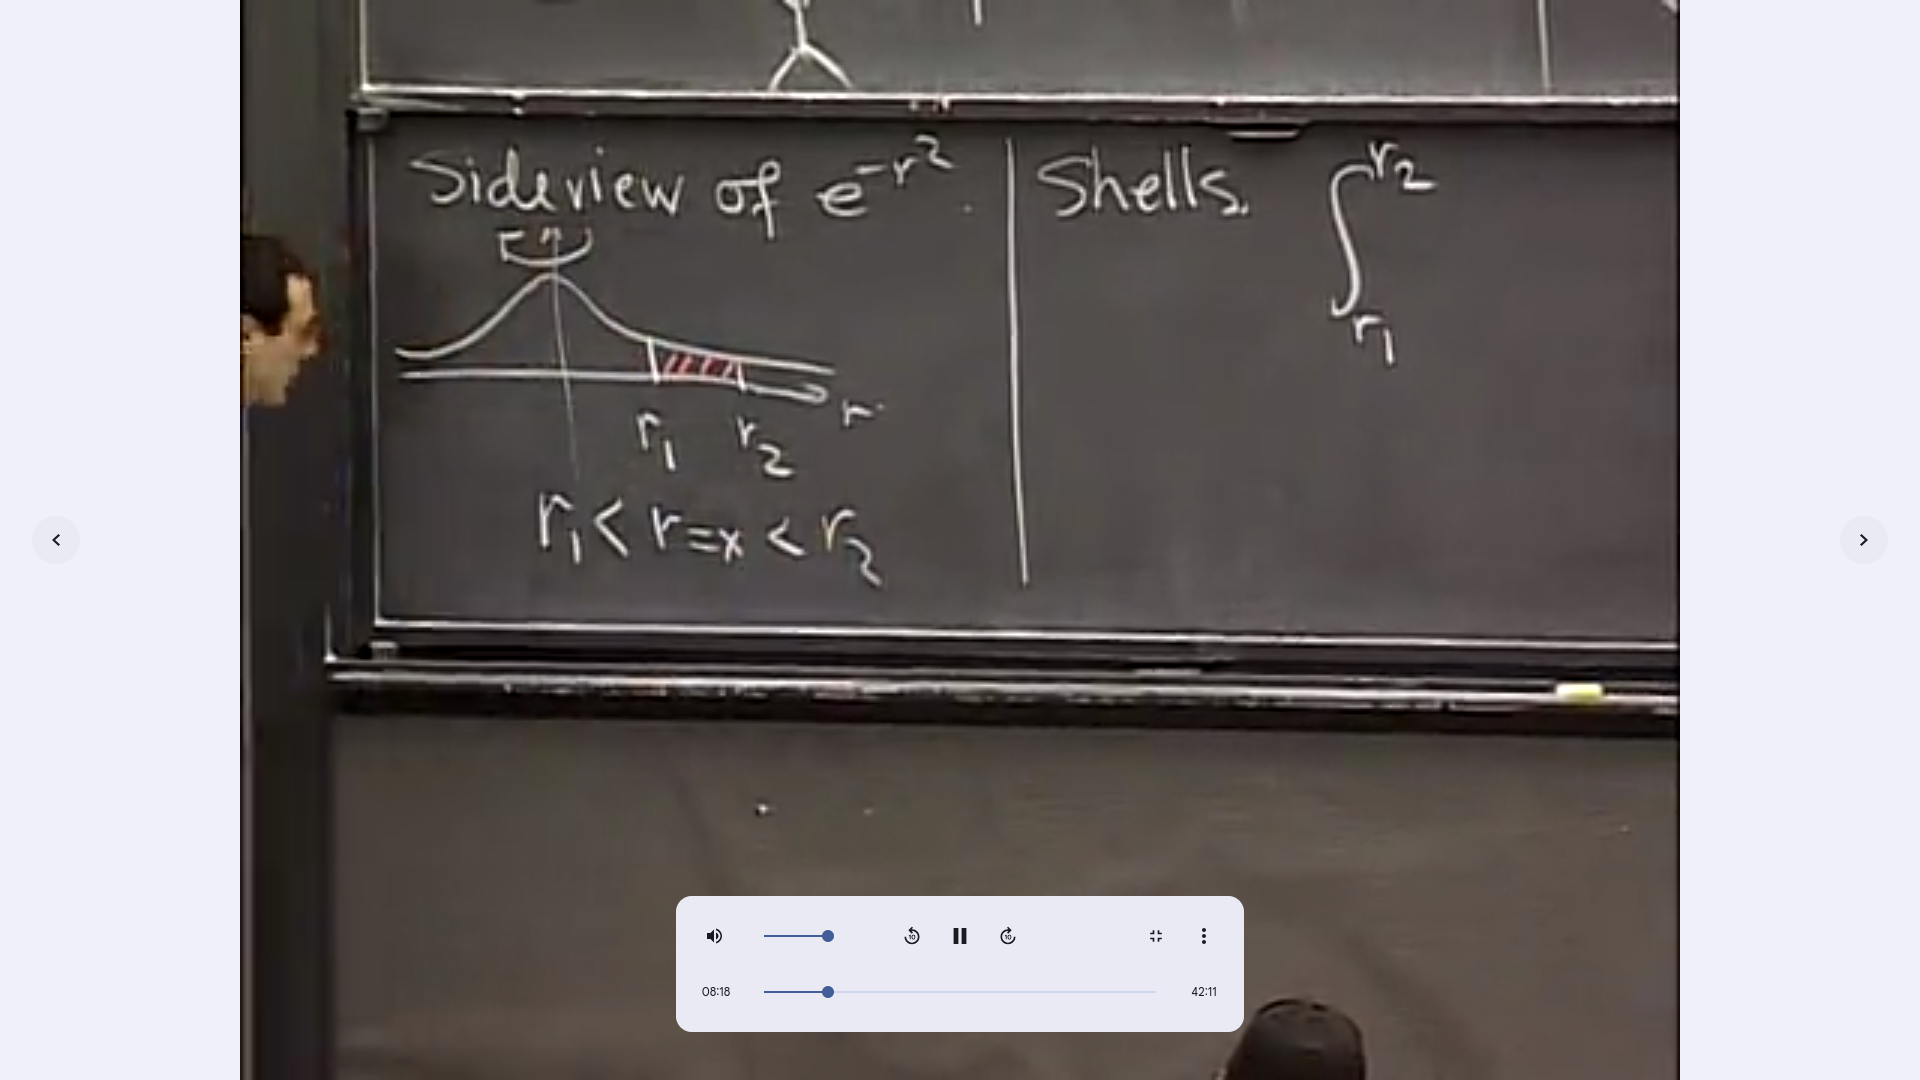 Sideview of e^-r^2.
r
r_1 r_2
r_1 < r = x < r_2
Shells. ∫_{r_1}^{r_2}
10 10
08:18 42:11